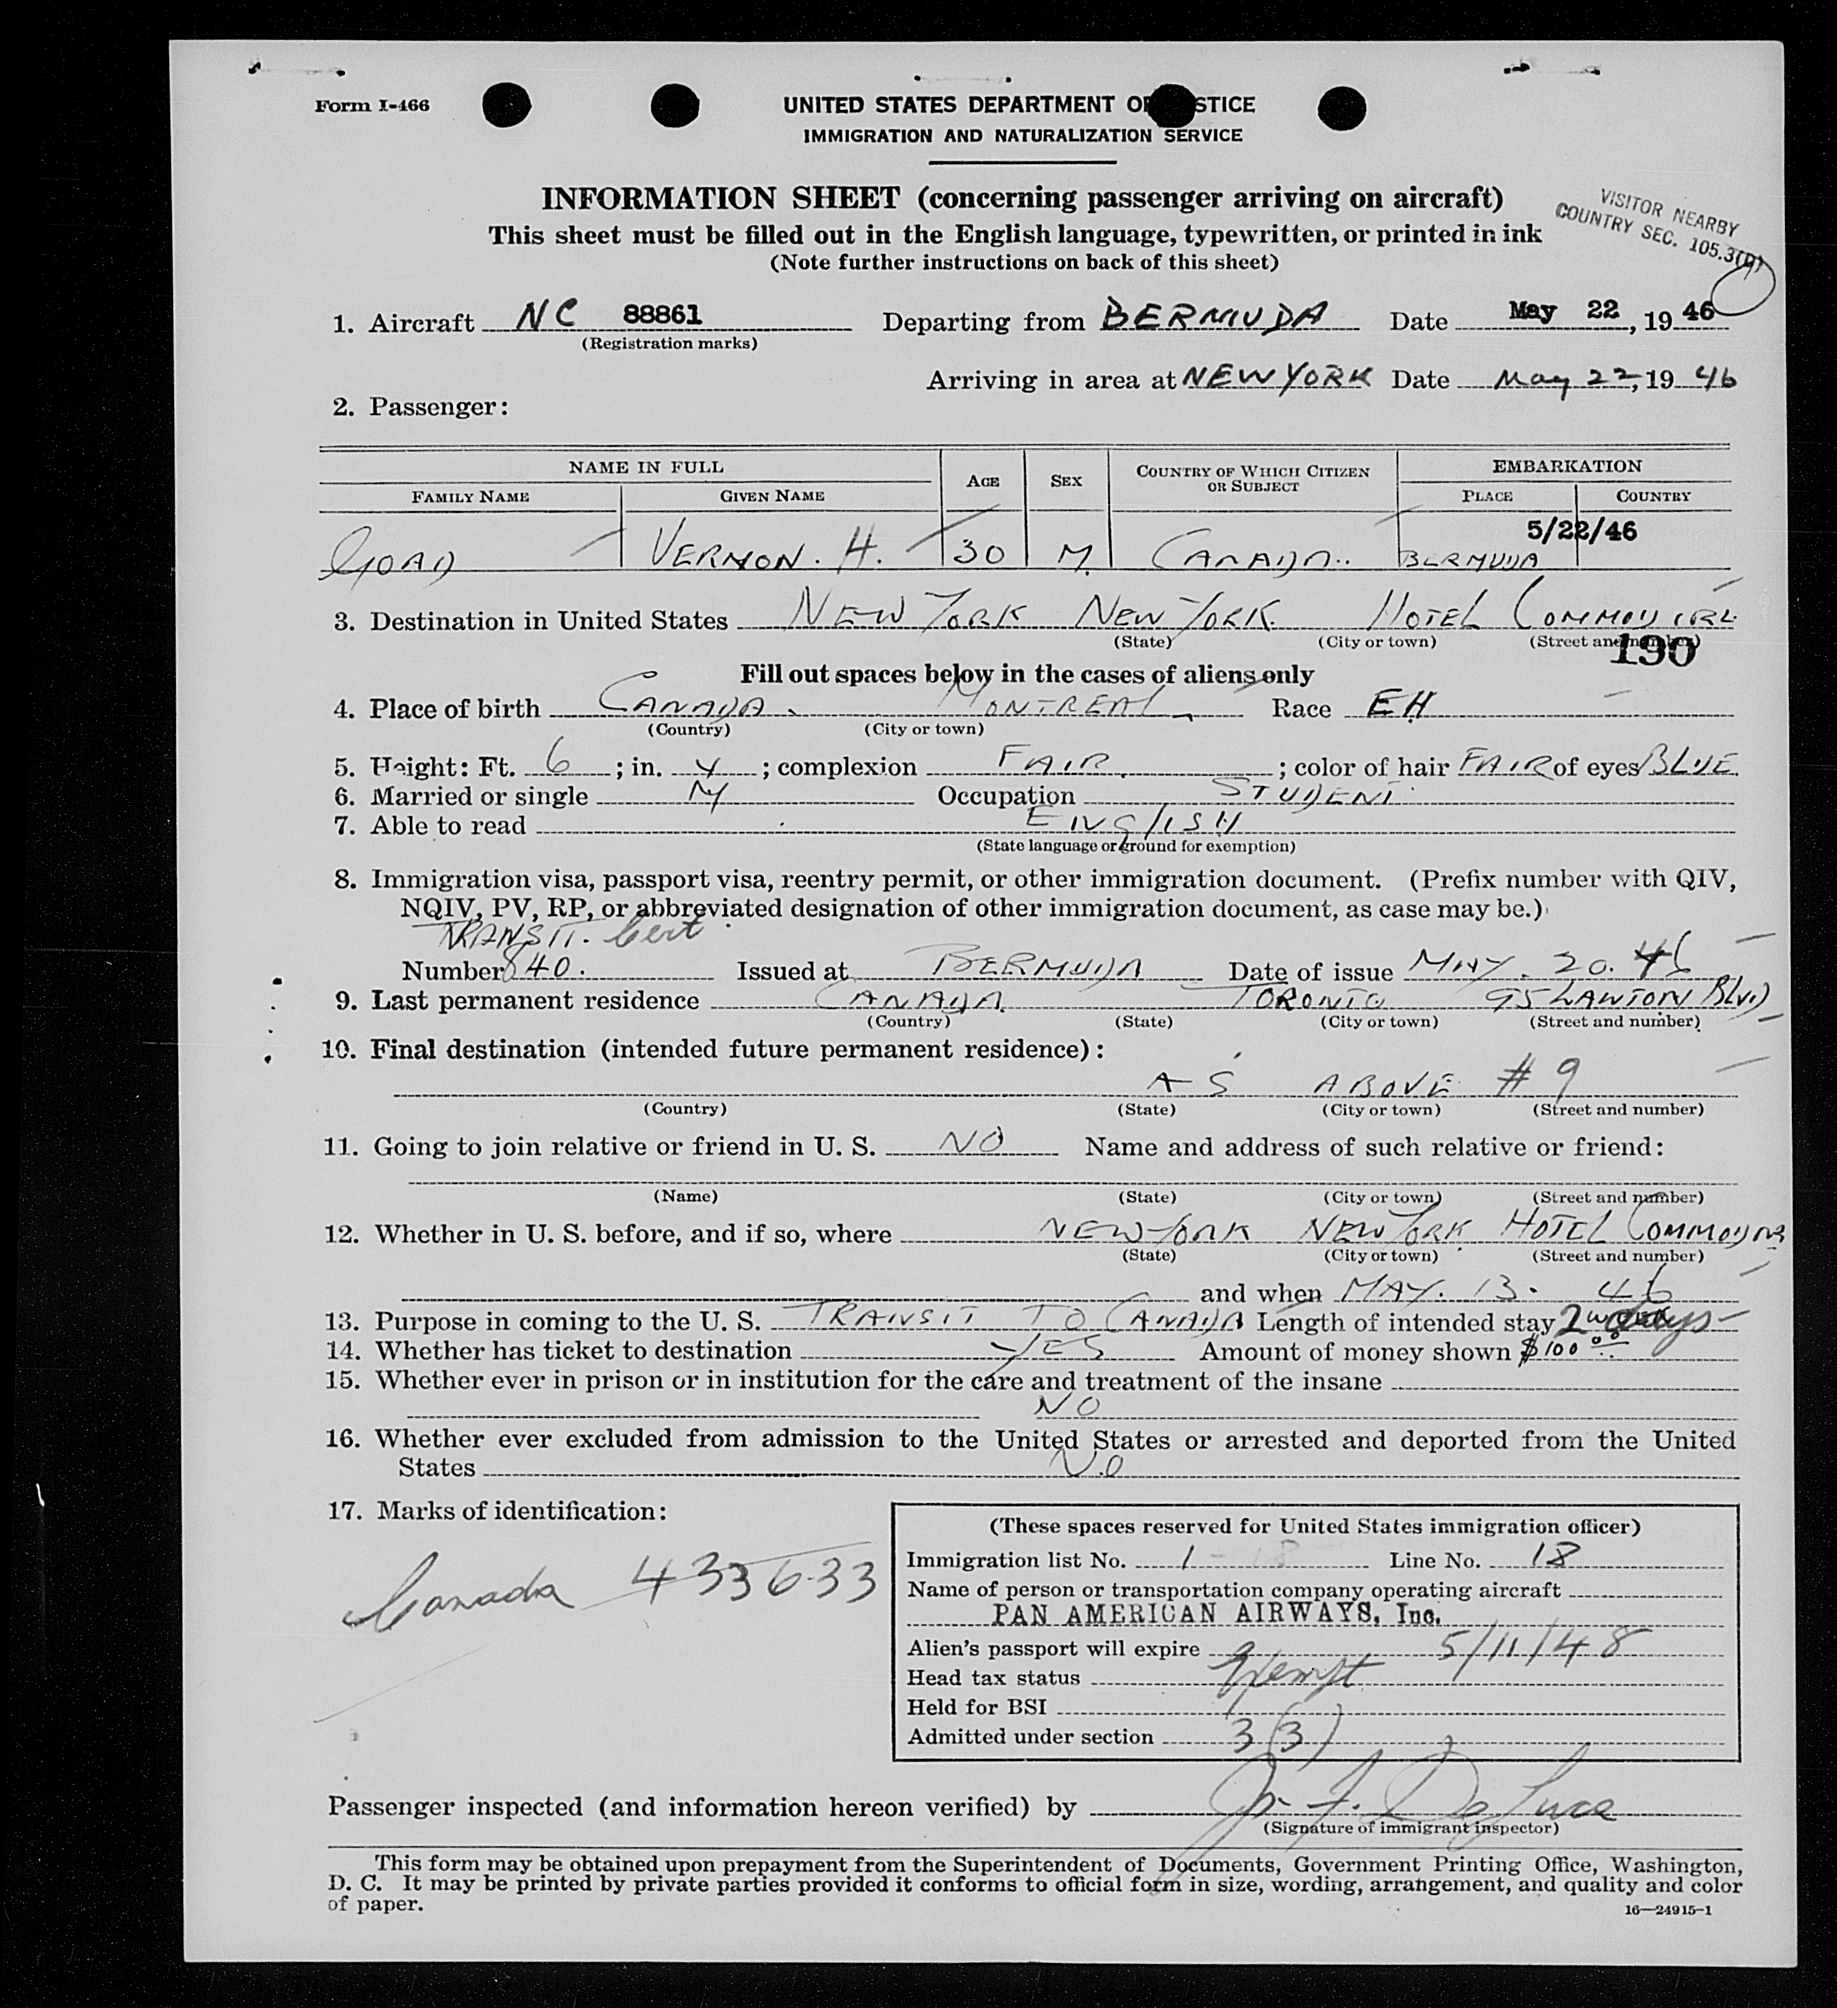 Form I-466
UNITED STATES DEPARTMENT OF STICE
IMMIGRATION AND NATURALIZATION SERVICE
INFORMATION SHEET (concerning passenger arriving on aircraft)
This sheet must be filled out in the English language, typewritten, or printed in ink
(Note further instructions on back of this sheet)
VISITOR NEARBY
COUNTRY SEC. 105.3(D)
1. Aircraft NC 88861 Departing from BERMUDA Date May 22, 19 46
(Registration marks)
Arriving in area at NEW YORK Date May 22, 19 46
2. Passenger:
NAME IN FULL AGE SEX COUNTRY OF WHICH CITIZEN OR SUBJECT EMBARKATION
FAMILY NAME GIVEN NAME PLACE COUNTRY
5/22/46
GOAD VERNON. H. 30 M. CANADA.. BERMUDA
3. Destination in United States NEW YORK NEW YORK. HOTEL COMMODORE
(State) (City or town) (Street and number)
190
Fill out spaces below in the cases of aliens only
4. Place of birth CANADA. MONTREAL Race EH
(Country) (City or town)
5. Height: Ft. 6 ; in. 4 ; complexion FAIR. ; color of hair FAIR of eyes BLUE.
6. Married or single M Occupation STUDENT
7. Able to read ENGLISH
(State language or ground for exemption)
8. Immigration visa, passport visa, reentry permit, or other immigration document. (Prefix number with QIV,
NQIV, PV, RP, or abbreviated designation of other immigration document, as case may be.)
TRANSIT. Cert
Number 840. Issued at BERMUDA Date of issue MAY. 20. 46
9. Last permanent residence CANADA. TORONTO 95 LAWTON BLVD
(Country) (State) (City or town) (Street and number)
10. Final destination (intended future permanent residence):
AS ABOVE # 9
(Country) (State) (City or town) (Street and number)
11. Going to join relative or friend in U. S. NO Name and address of such relative or friend:
(Name) (State) (City or town) (Street and number)
12. Whether in U. S. before, and if so, where NEW YORK NEW YORK HOTEL COMMODORE
(State) (City or town) (Street and number)
and when MAY. 13. 46
13. Purpose in coming to the U. S. TRANSIT TO CANADA Length of intended stay 2 days
14. Whether has ticket to destination YES Amount of money shown $100 00
15. Whether ever in prison or in institution for the care and treatment of the insane
NO
16. Whether ever excluded from admission to the United States or arrested and deported from the United
States NO
17. Marks of identification:
Canada 433633
(These spaces reserved for United States immigration officer)
Immigration list No. 1 Line No. 18
Name of person or transportation company operating aircraft
PAN AMERICAN AIRWAYS, Inc.
Alien's passport will expire 5/11/48
Head tax status Exempt
Held for BSI
Admitted under section 3(3)
Passenger inspected (and information hereon verified) by
(Signature of immigrant inspector)
This form may be obtained upon prepayment from the Superintendent of Documents, Government Printing Office, Washington,
D. C. It may be printed by private parties provided it conforms to official form in size, wording, arrangement, and quality and color
of paper.
16—24915-1